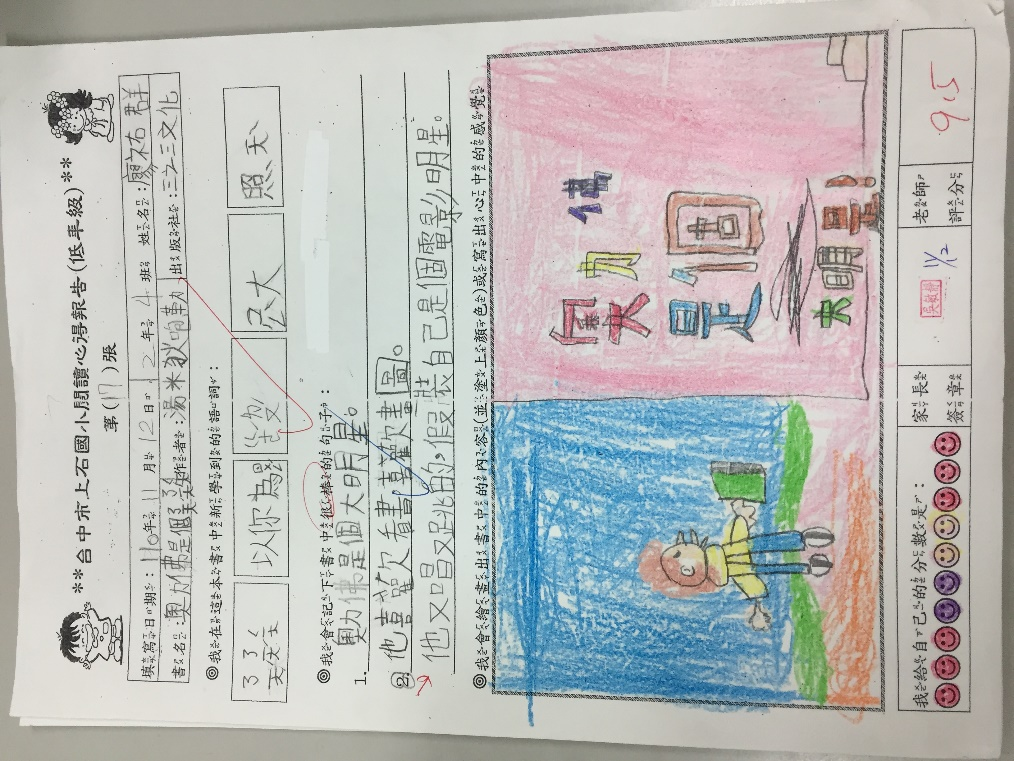 **台中市上石國小閱讀心得報告(低年級)**
第(17)張
填寫日期：110年11月12日，2年4班 姓名：廖祐群
書名：奧力佛是個 作者：湯米狄咆勒 出版社：三之三文化
◎我在這本書中新學到的語詞：
以你為 照天
◎我會記下書中很棒的句子：
1. 奧力佛是個大明星。
2. 他喜歡看書喜歡畫圖。
他又唱又跳的，假裝自己是個電影明星。
◎我會繪畫出書中的內容(並塗上顏色)或寫出心中的感覺
奧力佛
是一個
大明星！
我給自己的分數是：
家長簽章
11/2
老師評分
9.5